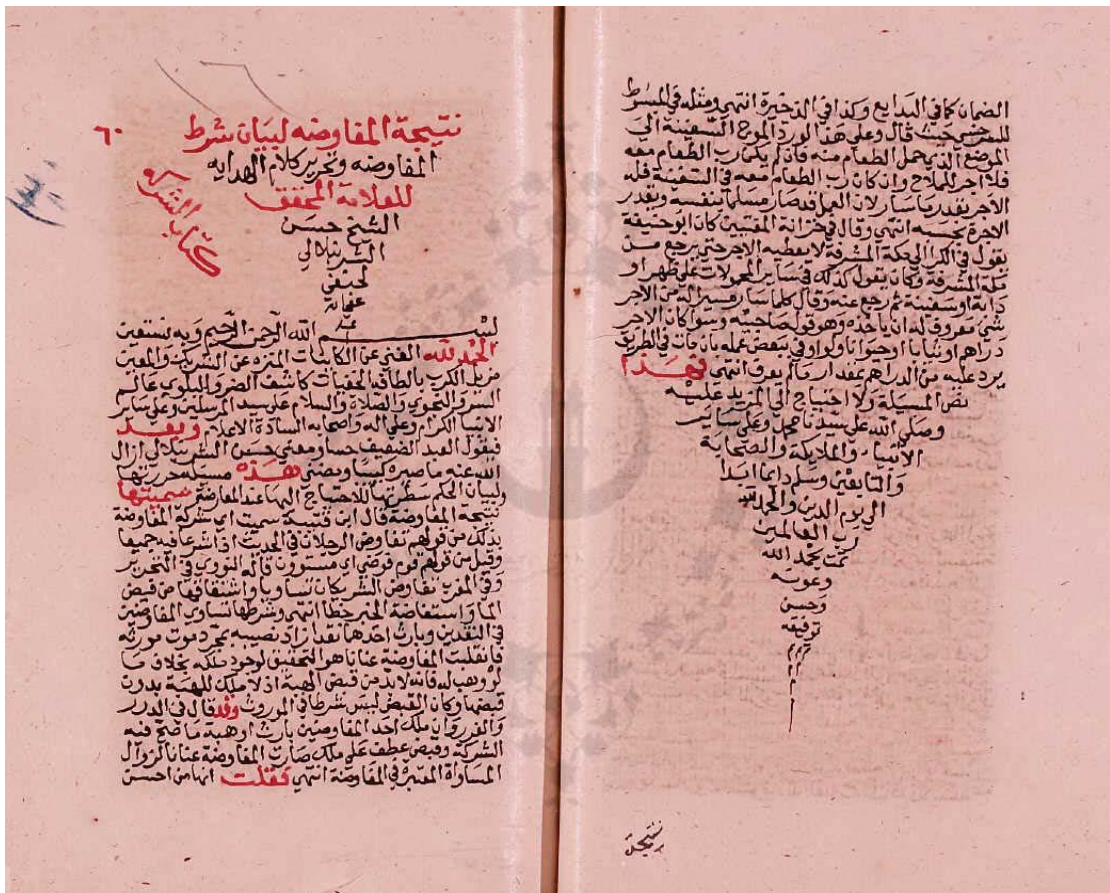 الضمان كما في البدايع وكذا في الذخيرة انتهى ومثله في المبسوط
للسرخسي حيث قال وعلى هذا لو رد الموج السفينة الى
الموضع الذي حمل الطعام منه فان لم يكن رب الطعام معه
فلا اجر للملاح وان كان رب الطعام معه في السفينة فله
الاجر بقدر ما سار لان العمل قد صار مسلما بنفسه وبقدر
الاجرة بحسبه انتهى وقال في خزانة المفتيين كان ابو حنيفة
يقول في الكرا الى مكة المشرفة لا يعطيه الاجر حتى يرجع من
مكة المشرفة وكان يقول كذلك في ساير الحمولات على ظهر او
دابة او سفينة ثم رجع عنه وقال كلما سار مسيرا له من الاجر
شي معروف له ان ياخذه وهو قول صاحبيه وسوا كان الاجر
دراهم او ثيابا او حيوانا ولو اوفي ببعض عمله بان مات في الطريق
يرد عليه من الدراهم بمقدار ما لم يعرف انتهى فهذا
نص المسيلة ولا احتياج الى المزيد عليه
وصلى الله على سيدنا محمد وعلى ساير
الانبياء والملايكة والصحابة
والتابعين وسلم دايما ابدا
الى يوم الدين والحمد لله
رب العالمين
تمت بحمد الله
وعونه
وحسن
توفيقه
م م م
نتيجة
٦٠
نتيجة المفاوضه لبيان شرط
المفاوضه وتحرير كلام الهدايه
للعلامة المحقق
الشيخ حسن
الشرنبلالي
الحنفي
عفى الله
عنه
كتاب الشركه
بسم الله الرحمن الرحيم وبه نستعين
الحمد لله الغني عن الكاينات المنزه عن الشريك والمعين
مزيل الكرب بالطافه الخفيات كاشف الضر والبلوى عالم
السر والنجوى والصلاة والسلام على سيد المرسلين وعلى ساير
الانبيا الكرام وعلى اله واصحابه السادة الاعلام وبعد
فيقول العبد الضعيف حسا ومعنى حسن الشرنبلالي ازال
الله عنه ما صيره كئيبا ومضنى هذه مسيلة حررتها
ولبيان الحكم سطرتها للاحتياج اليها عند المعارضة سميتها
نتيجة المفاوضة قال ابن قتيبة سميت اي شركة المفاوضة
بذلك من قولهم تفاوض الرجلان في الحديث اذا شرعا فيه جميعا
وقيل من قولهم قوم فوضى اي مستوون قاله النووي في التحرير
وفي المغرب تفاوض الشريكان تساويا واشتقاقها من فيض
الما واستفاضة الخبر خطا انتهى وشرطها تساوي المفاوضين
في النقدين وبارث احدهما نقدا زاد نصيبه بمجرد موت مورثه
فانقلبت المفاوضة عنانا هو التحقيق لوجود ملكه بخلاف ما
لو وهب له فانه لا بد من قبض الهبة اذ لا ملك للهبة بدون
قبضها وكان القبض ليس شرطا في الموروث وقد قال في الدرر
والغرر وان ملك احد المفاوضين بارث او هبة ما صح فيه
الشركة وقبض عطف على ملك صارت المفاوضة عنانا لزوال
المساواة المعتبرة في المفاوضة انتهى فقلت انها من احسن